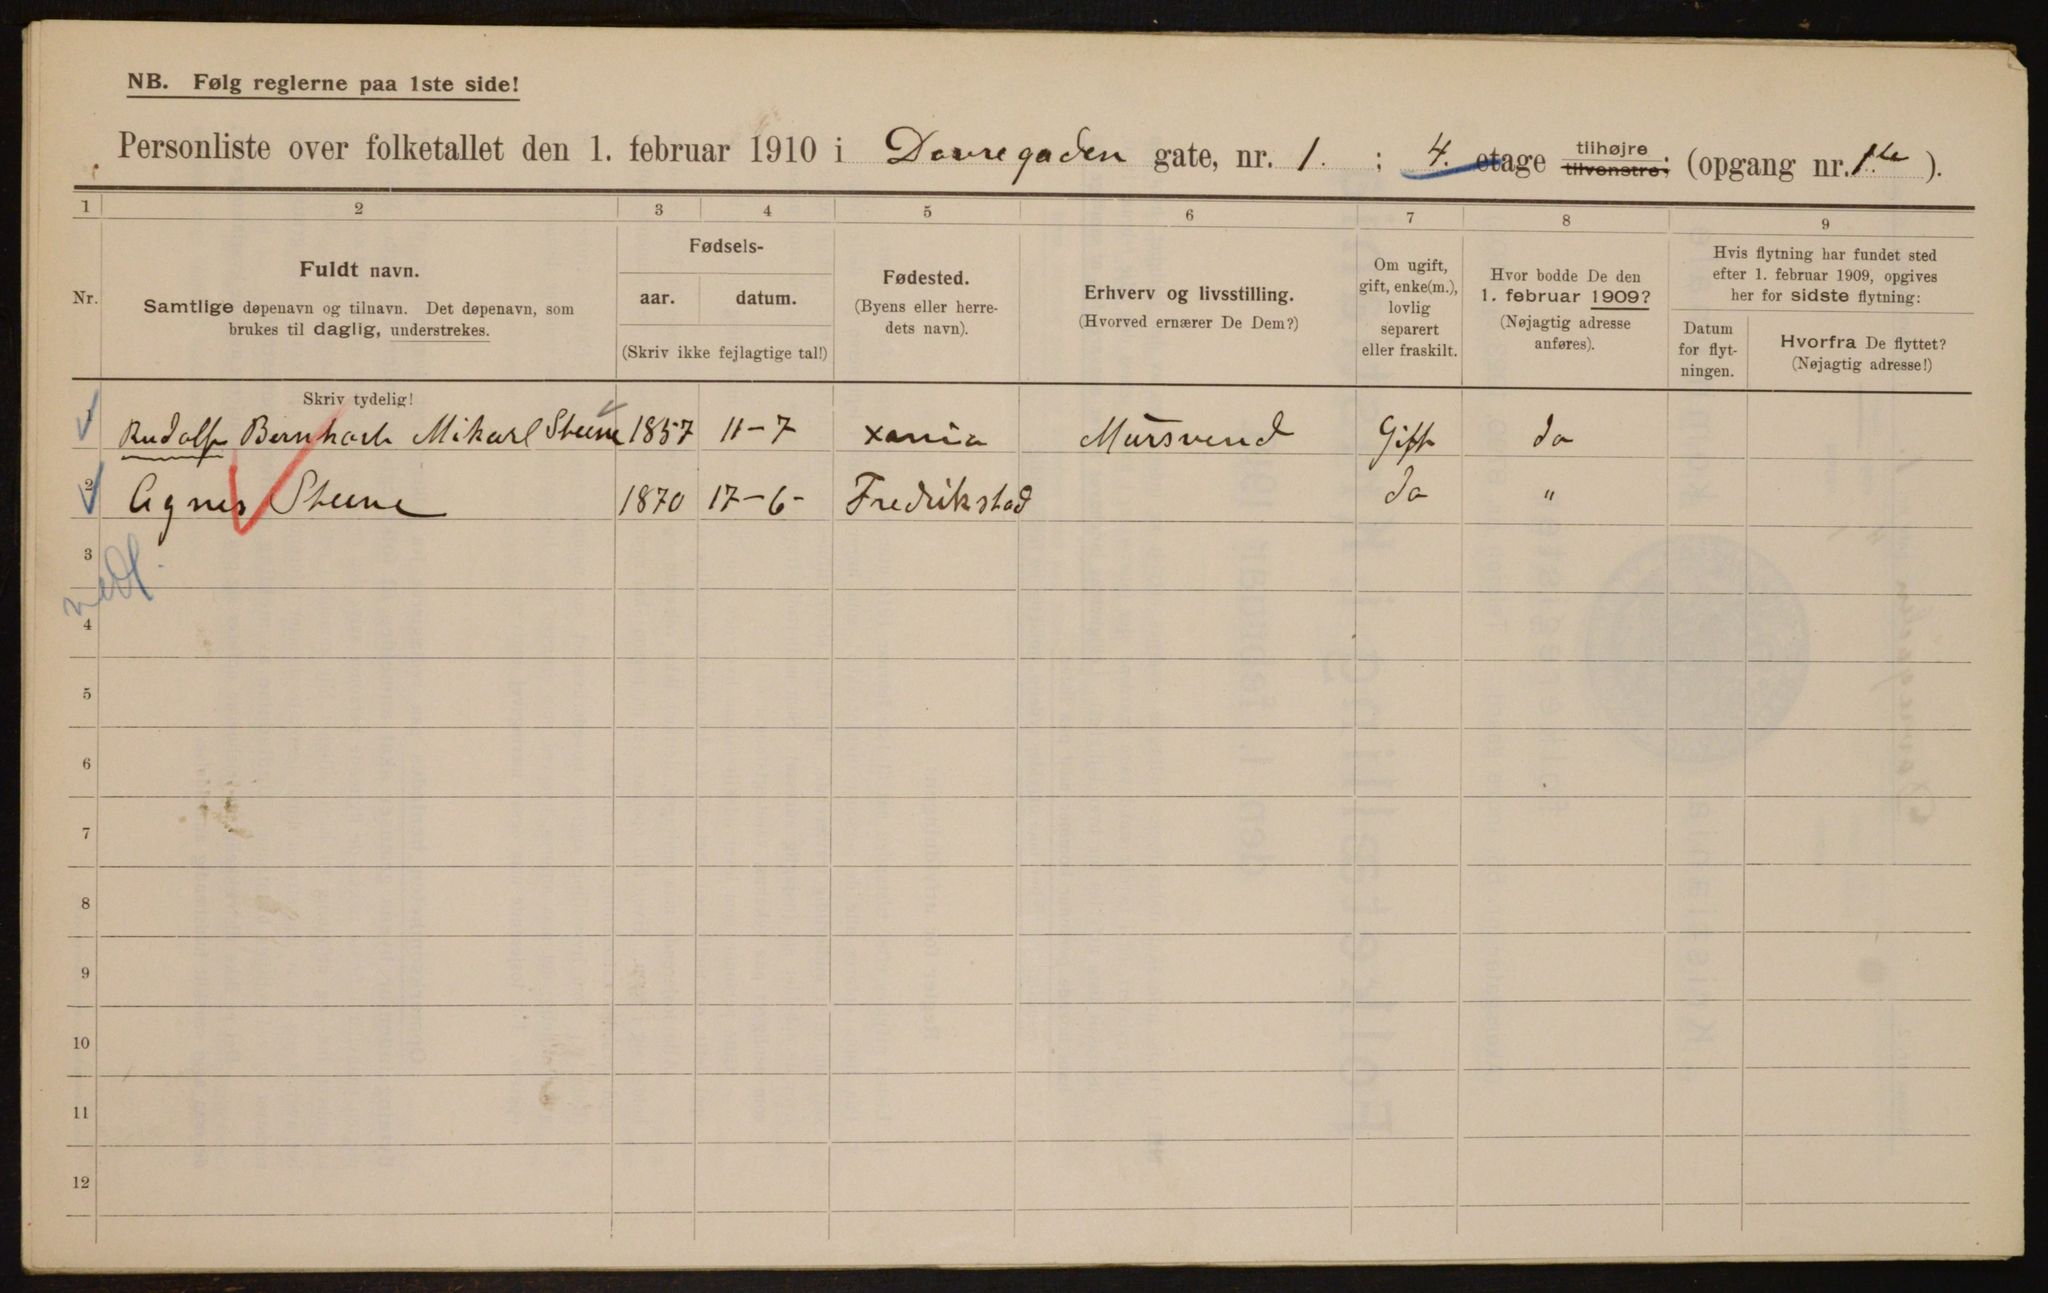 NB. Følg reglerne paa 1ste side!
Personliste over folketallet den 1. februar 1910 i Dovregaden gate, nr. 1. ; 4. etage tilhøjre tilvenstre; (opgang nr. 1ste ).
1 2 3 4 5 6 7 8 9
Nr.
Fuldt navn.
Samtlige døpenavn og tilnavn. Det døpenavn, som
brukes til daglig, understrekes.
Fødsels-
aar. datum.
(Skriv ikke fejlagtige tal!)
Fødested.
(Byens eller herre-
dets navn).
Erhverv og livsstilling.
(Hvorved ernærer De Dem?)
Om ugift,
gift, enke(m.),
lovlig
separert
eller fraskilt.
Hvor bodde De den
1. februar 1909?
(Nøjagtig adresse
anføres).
Hvis flytning har fundet sted
efter 1. februar 1909, opgives
her for sidste flytning:
Datum
for flyt-
ningen.
Hvorfra De flyttet?
(Nøjagtig adresse!)
Skriv tydelig!
1 Rudolf Bernhart Mikael Steene 1857 11-7 Xania Mursvend Gift do
2 Agnes Steene 1870 17-6- Fredrikstad do "
3
4
5
6
7
8
9
10
11
12